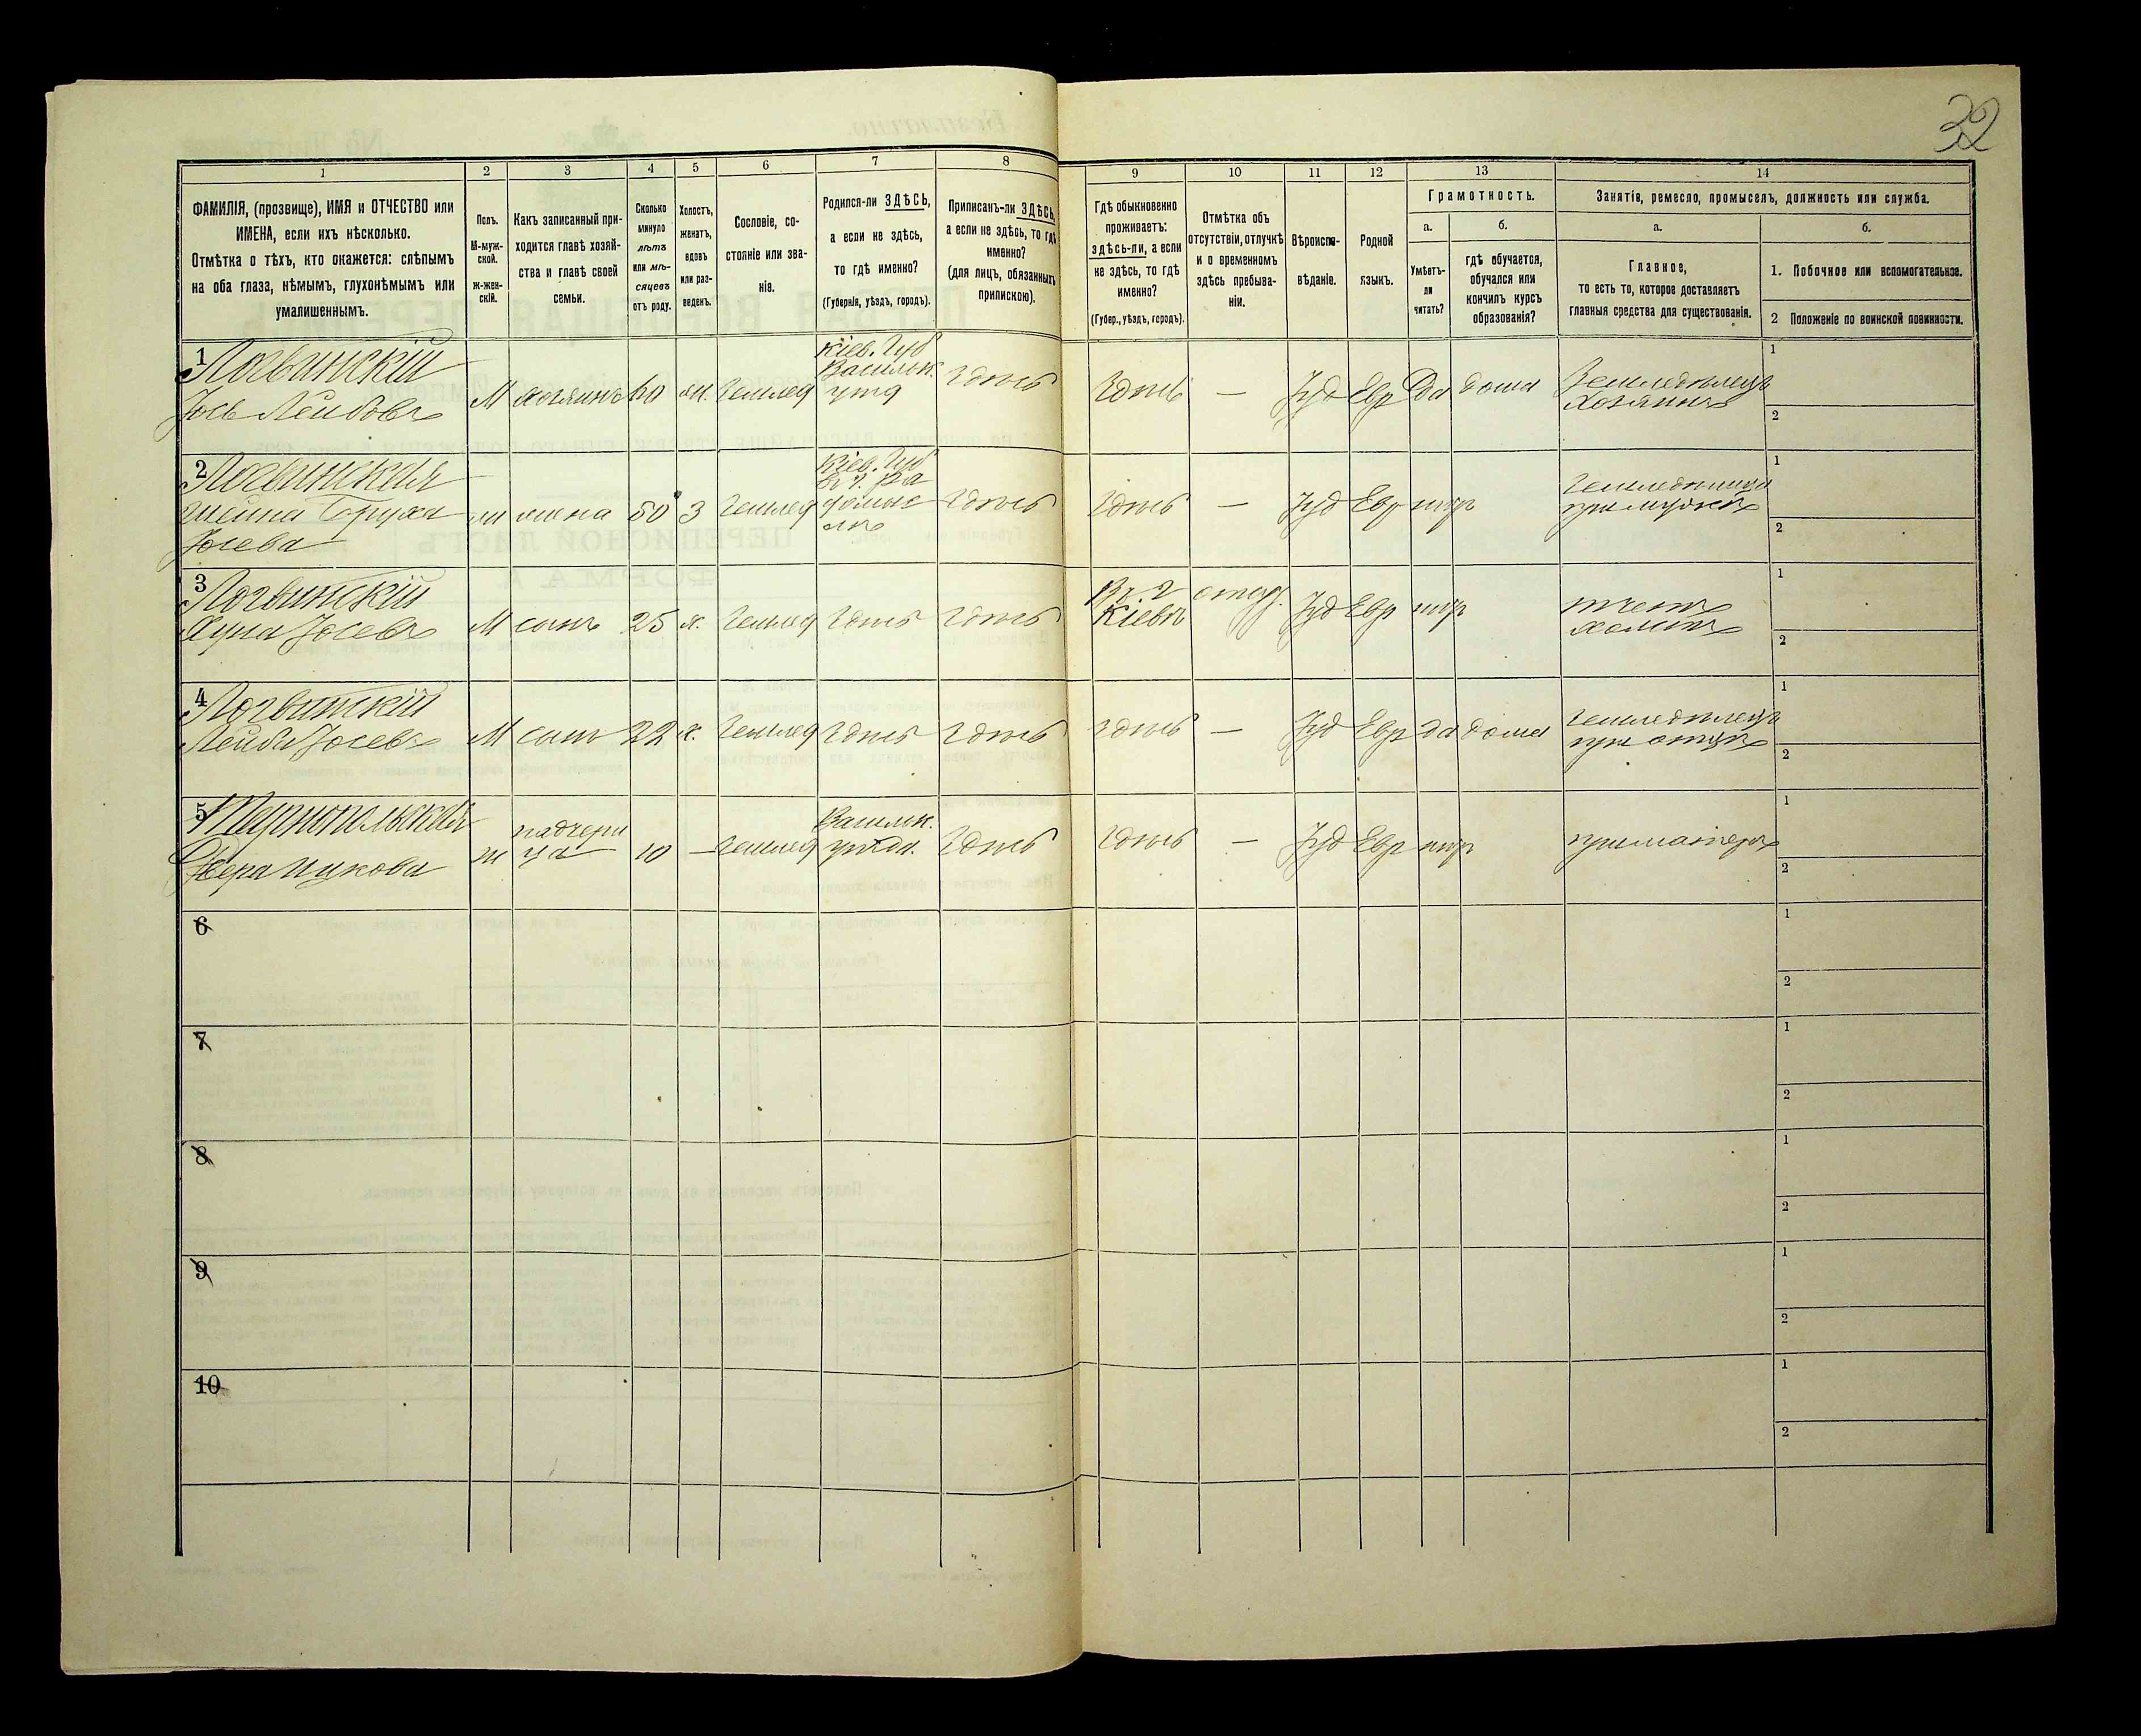 32
1 2 3 4 5 6 7 8 9 10 11 12 13 14
ФАМИЛІЯ, (прозвище), ИМЯ и ОТЧЕСТВО или
ИМЕНА, если ихъ нѣсколько.
Отмѣтка о тѣхъ, кто окажется: слѣпымъ
на оба глаза, нѣмымъ, глухонѣмымъ или
умалишеннымъ.
Полъ.
М-муж-
ской.
ж-жен-
скій.
Какъ записанный при-
ходится главѣ хозяй-
ства и главѣ своей
семьи.
Сколько
минуло
лѣтъ
или мѣ-
сяцевъ
отъ роду.
Холостъ,
женатъ,
вдовъ
или раз-
веденъ.
Сословіе, со-
стояніе или зва-
ніе.
Родился-ли ЗДѢСЬ,
а если не здѣсь,
то гдѣ именно?
(Губернія, уѣздъ, городъ).
Приписанъ-ли ЗДѢСЬ,
а если не здѣсь, то гдѣ
именно?
(для лицъ, обязанныхъ
припискою).
Гдѣ обыкновенно
проживаетъ:
здѣсь-ли, а если
не здѣсь, то гдѣ
именно?
(Губер., уѣздъ, городъ).
Отмѣтка объ
отсутствіи, отлучкѣ
и о временномъ
здѣсь пребыва-
ніи.
Вѣроиспо-
вѣданіе.
Родной
языкъ.
Грамотность.
а.
Умѣетъ-
ли
читать?
б.
гдѣ обучается,
обучался или
кончилъ курсъ
образованія?
Занятія, ремесло, промыселъ, должность или служба.
а.
Главное,
то есть то, которое доставляетъ
главныя средства для существованія.
б.
1. Побочное или вспомогательное.
2 Положеніе по воинской повинности.
1 Логвинскій
Іось Лейбовъ
М хозяинъ 60 жн. землед
Кіев. Губ
Васильк.
уѣзд
здѣсь здѣсь — Іуд Евр да дома
Земледѣлецъ
хозяинъ
1
2
2 Логвинская
Шейна Боруха
Іосева
ж жена 50 З землед
Кіев. Губ
здѣсь здѣсь — Іуд Евр нѣт
земледѣлица
при мужѣ
1
2
3 Логвинскій
Хуна Іосевъ
М сынъ 25 х. землед здѣсь здѣсь
Въ г
Кіевѣ
Іуд Евр нѣт
1
2
4 Логвинскій
Лейба Іосевъ
М сынъ 22 х. землед здѣсь здѣсь здѣсь — Іуд Евр да дома
земледѣлецъ
при отцѣ
1
2
5 Тернопольская
Двера Ицкова
ж
падчери
ца
10 — землед
Васильк.
уѣзда.
здѣсь здѣсь — Іуд Евр нѣт
при матери
1
2
6
1
2
7
1
2
8
1
2
9
1
2
10
1
2